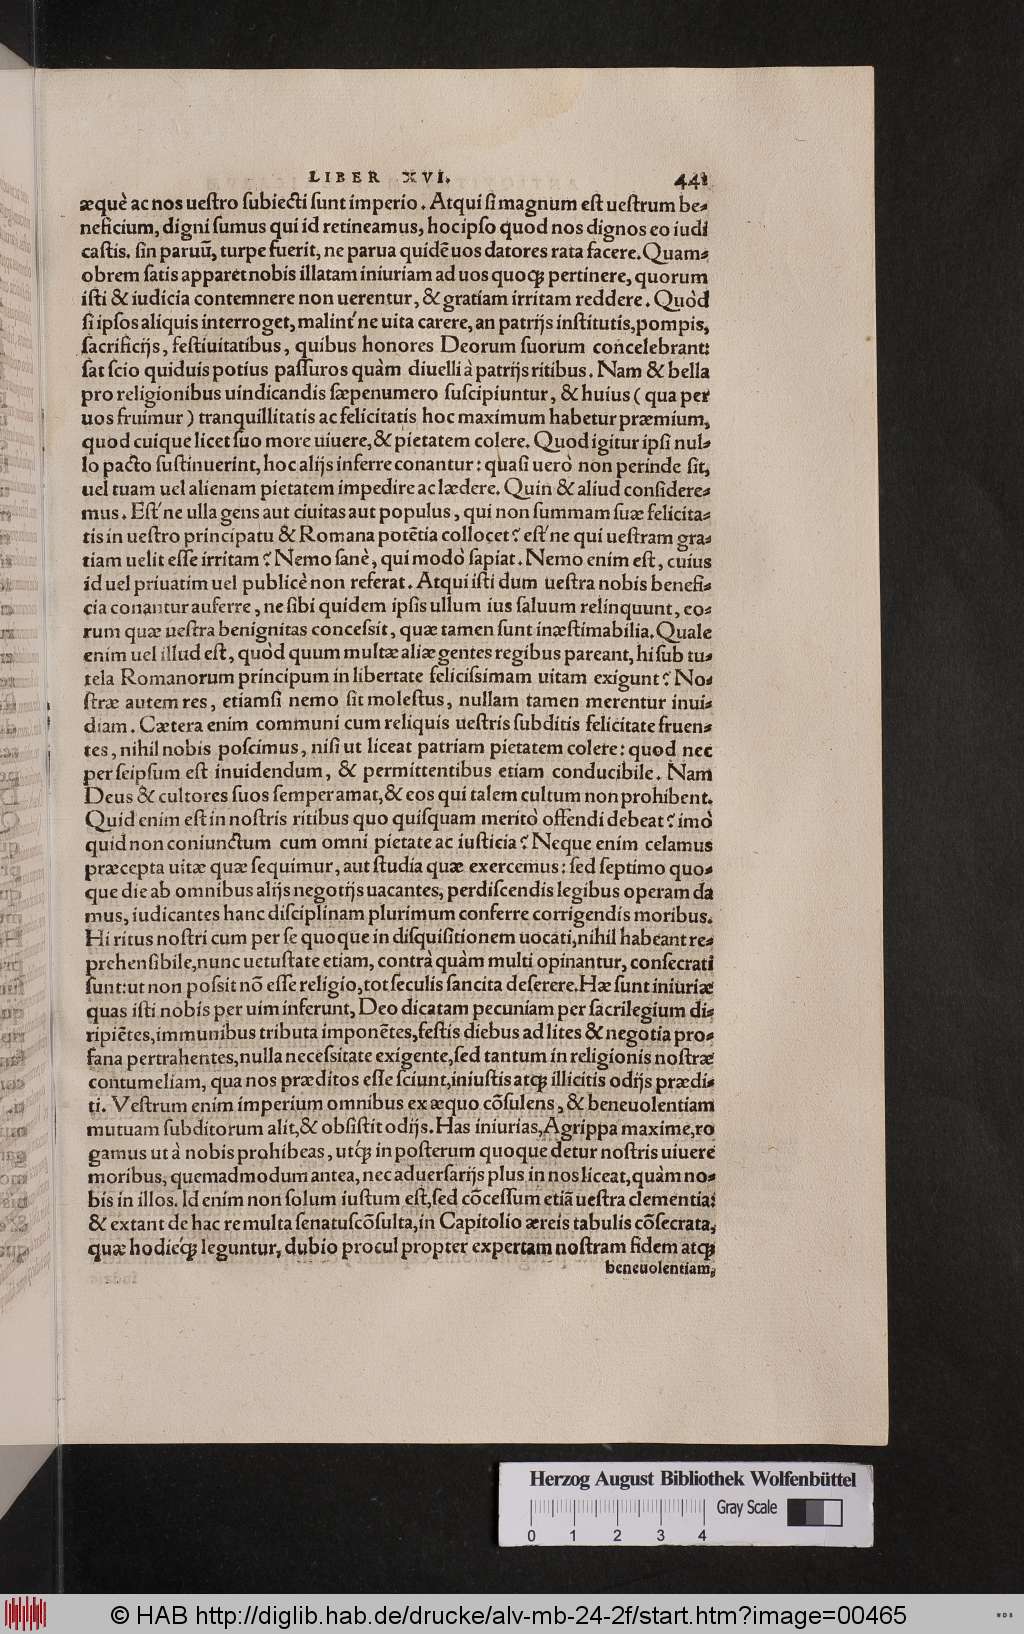 LIBER XVI. 441
æquè ac nos ueſtro ſubiecti ſunt imperio. Atqui ſi magnum eſt ueſtrum be⸗
neficium, digni ſumus qui id retineamus, hoc ipſo quod nos dignos eo iudi
caſtis. ſin paruũ, turpe fuerit, ne parua quidẽ uos datores rata facere. Quam⸗
obrem ſatis apparet nobis illatam iniuriam ad uos quoqꝫ pertinere, quorum
iſti & iudicia contemnere non uerentur, & gratiam irritam reddere. Quòd
ſi ipſos aliquis interroget, malint´ne uita carere, an patrijs inſtitutis, pompis,
ſacrificijs, feſtiuitatibus, quibus honores Deorum ſuorum concelebrant:
ſat ſcio quiduis potius paſſuros quàm diuelli à patrijs ritibus. Nam & bella
pro religionibus uindicandis ſæpenumero ſuſcipiuntur, & huius (qua per
uos fruimur) tranquillitatis ac felicitatis hoc maximum habetur præmium,
quod cuique licet ſuo more uiuere, & pietatem colere. Quod igitur ipſi nul⸗
lo pacto ſuſtinuerint, hoc alijs inferre conantur: quaſi uerò non perinde ſit,
uel tuam uel alienam pietatem impedire ac lædere. Quin & aliud conſidere⸗
mus. Eſt´ne ulla gens aut ciuitas aut populus, qui non ſummam ſuæ felicita⸗
tis in ueſtro principatu & Romana potẽtia collocet? eſt´ne qui ueſtram gra⸗
tiam uelit eſſe irritam? Nemo ſanè, qui modò ſapiat. Nemo enim eſt, cuius
id uel priuatim uel publicè non referat. Atqui iſti dum ueſtra nobis benefi⸗
cia conantur auferre, ne ſibi quidem ipſis ullum ius ſaluum relinquunt, eo⸗
rum quæ ueſtra benignitas conceſsit, quæ tamen ſunt inæſtimabilia. Quale
enim uel illud eſt, quòd quum multæ aliæ gentes regibus pareant, hi ſub tu⸗
tela Romanorum principum in libertate feliciſsimam uitam exigunt? No⸗
ſtræ autem res, etiamſi nemo ſit moleſtus, nullam tamen merentur inui⸗
diam. Cætera enim communi cum reliquis ueſtris ſubditis felicitate fruen⸗
tes, nihil nobis poſcimus, niſi ut liceat patriam pietatem colere: quod nec
per ſeipſum eſt inuidendum, & permittentibus etiam conducibile. Nam
Deus & cultores ſuos ſemper amat, & eos qui talem cultum non prohibent.
Quid enim eſt in noſtris ritibus quo quiſquam meritò offendi debeat? imò
quid non coniunctum cum omni pietate ac iuſticia? Neque enim celamus
præcepta uitæ quæ ſequimur, aut ſtudia quæ exercemus: ſed ſeptimo quo⸗
que die ab omnibus alijs negotijs uacantes, perdiſcendis legibus operam da
mus, iudicantes hanc diſciplinam plurimum conferre corrigendis moribus.
Hi ritus noſtri cum per ſe quoque in diſquiſitionem uocati, nihil habeant re⸗
prehenſibile, nunc uetuſtate etiam, contrà quàm multi opinantur, conſecrati
ſunt: ut non poſsit nõ eſſe religio, tot ſeculis ſancita deſerere. Hæ ſunt iniuriæ
quas iſti nobis per uim inferunt, Deo dicatam pecuniam per ſacrilegium di⸗
ripiẽtes, immunibus tributa imponẽtes, feſtis diebus ad lites & negotia pro⸗
fana pertrahentes, nulla neceſsitate exigente, ſed tantum in religionis noſtræ
contumeliam, qua nos præditos eſſe ſciunt, iniuſtis atqꝫ illicitis odijs prædi⸗
ti. Veſtrum enim imperium omnibus ex æquo cõſulens, & beneuolentiam
mutuam ſubditorum alit, & obſiſtit odijs. Has iniurias, Agrippa maxime, ro
gamus ut à nobis prohibeas, utqꝫ in poſterum quoque detur noſtris uiuere
moribus, quemadmodum antea, nec aduerſarijs plus in nos liceat, quàm no⸗
bis in illos. Id enim non ſolum iuſtum eſt, ſed cõceſſum etiã ueſtra clementia:
& extant de hac re multa ſenatuſcõſulta, in Capitolio æreis tabulis cõſecrata,
quæ hodieqꝫ leguntur, dubio procul propter expertam noſtram fidem atqꝫ
beneuolentiam,
Herzog August Bibliothek Wolfenbüttel
0 1 2 3 4 Gray Scale
© HAB http://diglib.hab.de/drucke/alv-mb-24-2f/start.htm?image=00465